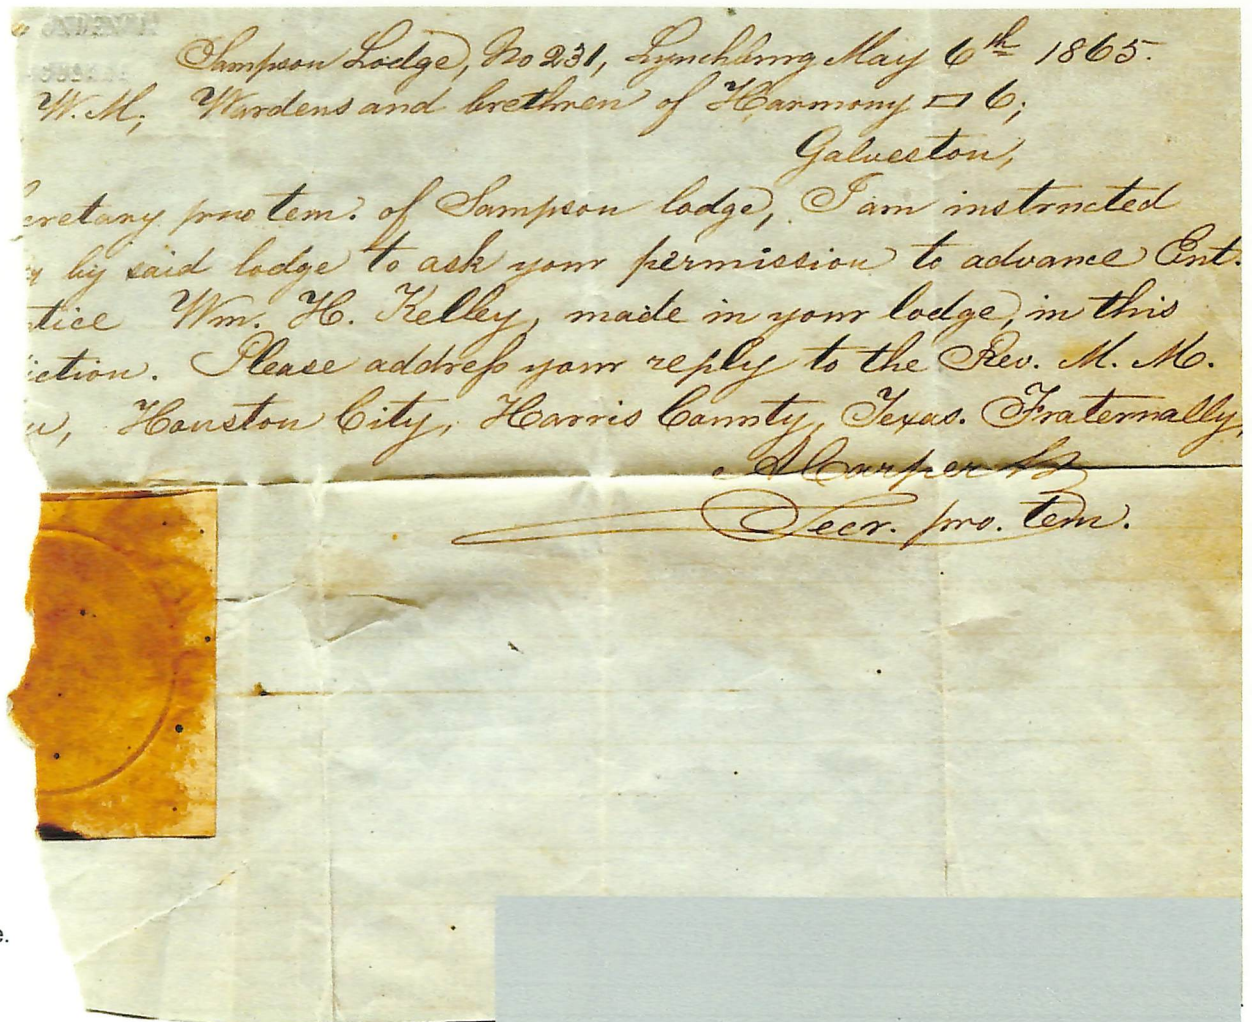 Sampson Lodge, No 231, Lynchburg May 6th 1865.
W. M., Wardens and brethren of Harmony ▭ 6,
Galveston,
eretary pro tem. of Sampson lodge, I am instructed
by said lodge to ask your permission to advance Ent.
tice Wm. H. Kelley, made in your lodge, in this
iction. Please address your reply to the Rev. M. M.
Houston City, Harris County, Texas. Fraternally,
Secr. pro. tem.
e.